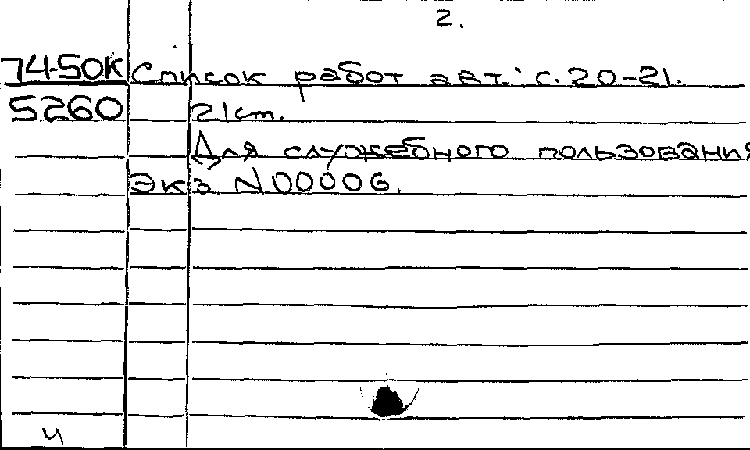 2.
74-50К Список работ авт.: с. 20-21.
5260 21 cm.
Для служебного пользования
Экз N 00006.
ч